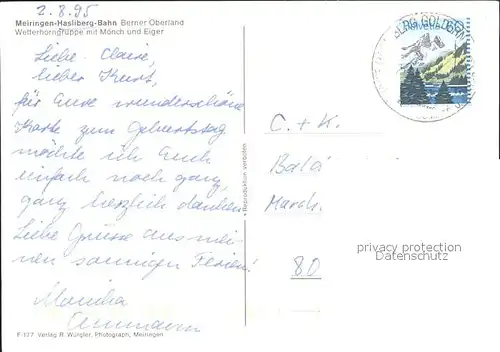 2.8.95
Meiringen-Hasliberg-Bahn Berner Oberland
Wetterhorngruppe mit Mönch und Eiger
Liebe Claire,
lieber Kurt,
für Eure wunderschöne
Karte zum Geburtstag
möchte ich Euch
einfach noch ganz,
ganz herzlich danken.
Liebe Grüsse aus mei-
nen sonnigen Ferien!
Monika
Ammann
F-177 Verlag R. Würgler, Photograph, Meiringen
• Reproduktion verboten
BERG GOLDERN
Helvetia
C. + K.
March.
80
privacy protection
Datenschutz